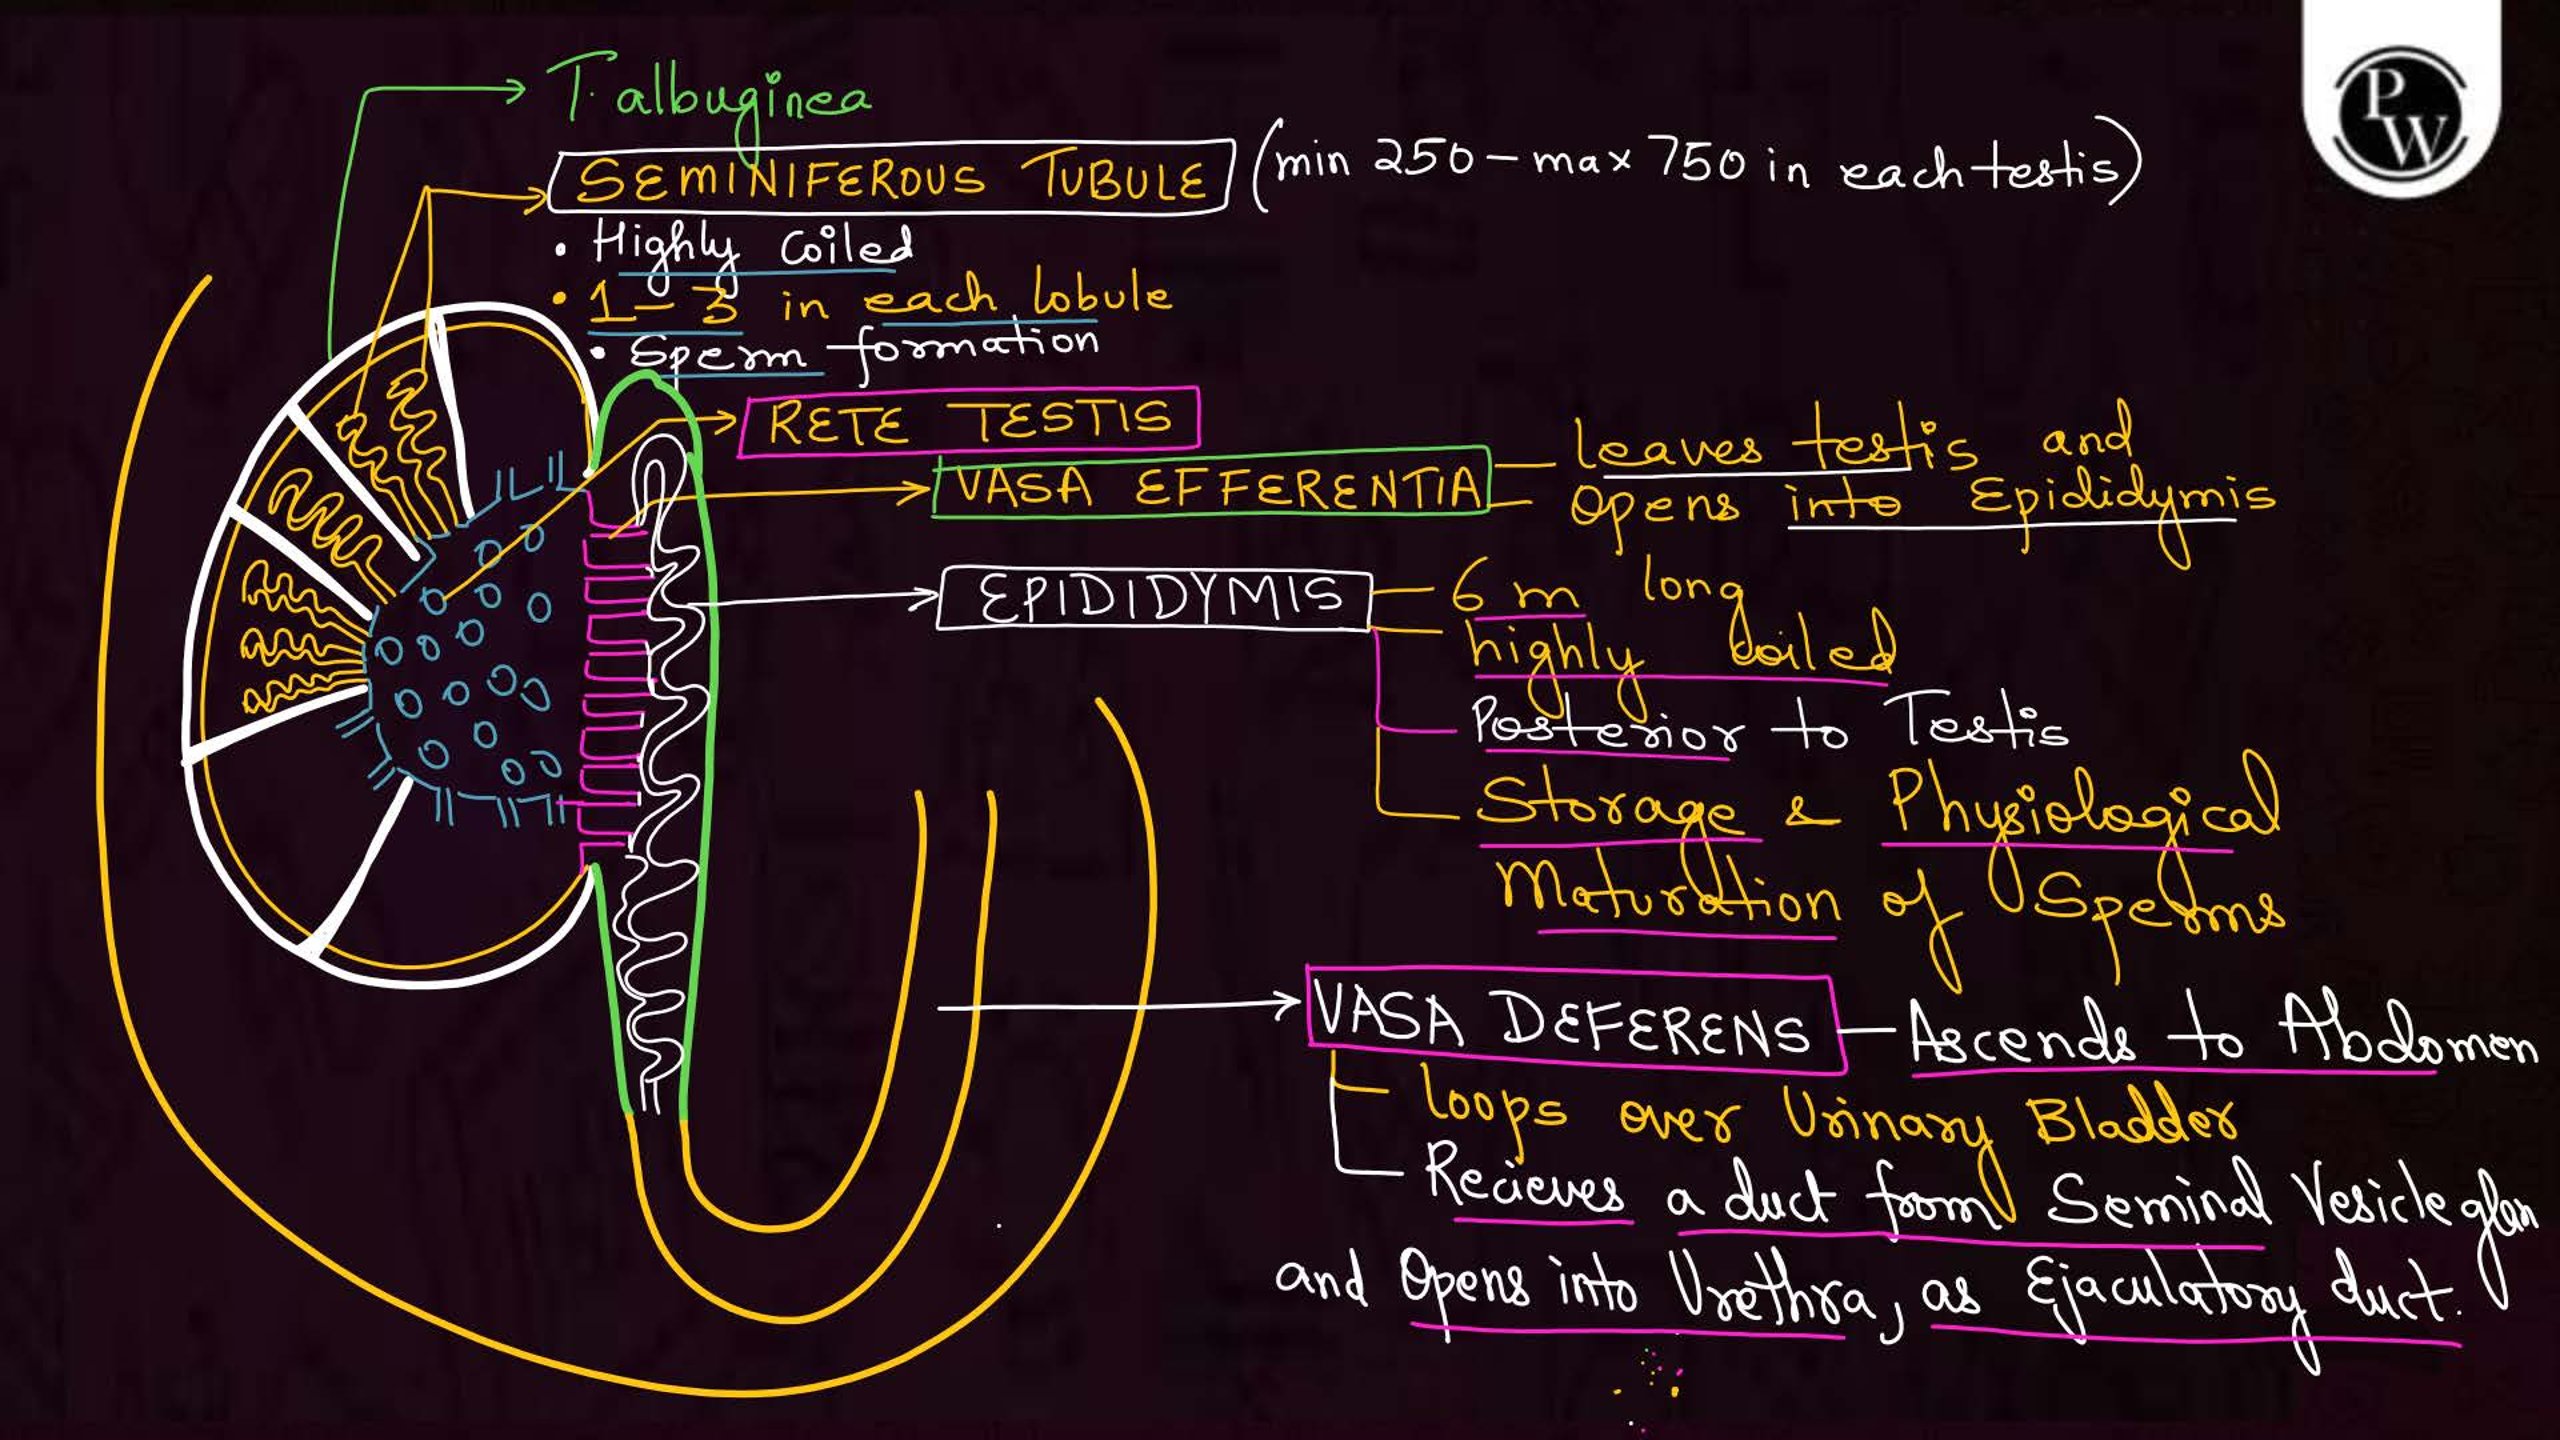 T. albuginea
SEMINIFEROUS TUBULE (min 250 – max 750 in each testis)
• Highly coiled
• 1 – 3 in each lobule
• Sperm formation
RETE TESTIS
VASA EFFERENTIA — leaves testis and
Opens into Epididymis
EPIDIDYMIS — 6 m long
highly coiled
Posterior to Testis
Storage & Physiological
Maturation of Sperms
VASA DEFERENS — Ascends to Abdomen
Loops over Urinary Bladder
Recieves a duct from Seminal Vesicle glan
and Opens into Urethra, as Ejaculatory duct.
PW